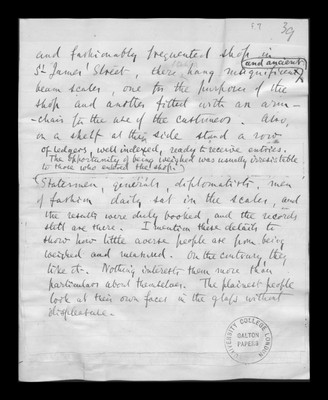 59
39
and fashionably frequented shop in
St James' Street, there hang magnificent and ancient
beam scales, one for the purposes of the
shop and another fitted with an arm-
-chair for the use of the customers. Also,
on a shelf at their side stand a row
of ledgers, well indexed, ready to receive entries.
The opportunity of being weighed was usually irresistible
to those who entered the shop.
Statesmen, generals, diplomatists, men
of fashion daily sat in the scales, and
the results were duly booked, and the records
still are there. I mention these details to
show how little averse people are from being
weighed and measured. On the contrary they
like it. Nothing interests them more than
particulars about themselves. The plainest people
look at their own faces in the glass without
displeasure.
UNIVERSITY COLLEGE LONDON
GALTON
PAPERS